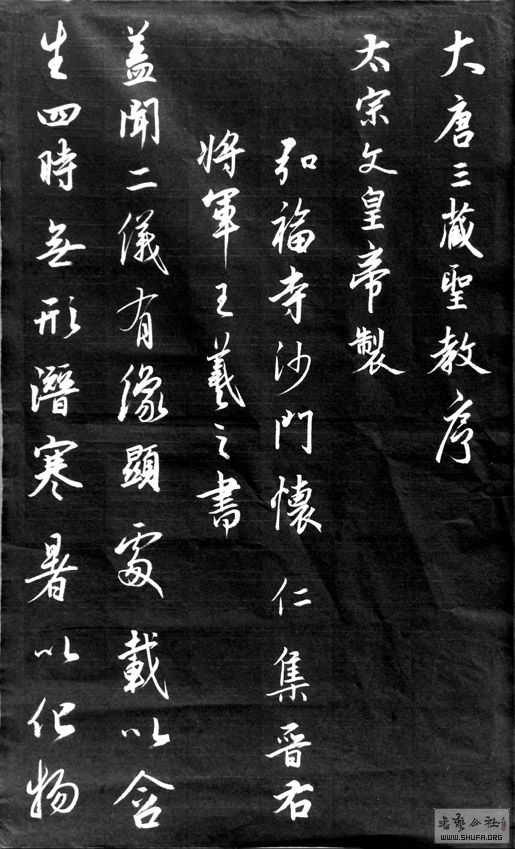 大唐三藏聖教序
太宗文皇帝製
弘福寺沙門懷仁集晉右
將軍王羲之書
蓋聞二儀有像顯覆載以含
生四時無形潛寒暑以化物
書藝公社
WWW.SHUFA.ORG